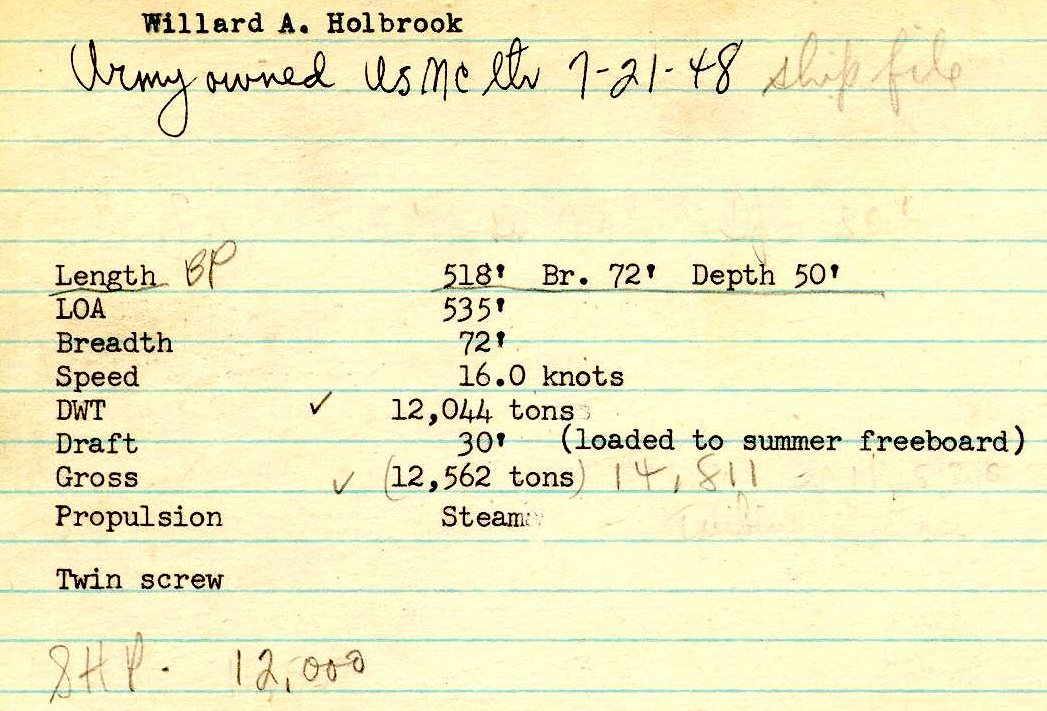 Willard A. Holbrook
Army owned USMC ltr 7-21-48 ship file
Length BP 518' Br. 72' Depth 50'
LOA 535'
Breadth 72'
Speed 16.0 knots
DWT ✓ 12,044 tons
Draft 30' (loaded to summer freeboard)
Gross ✓ (12,562 tons) 14,811
Propulsion Steam
Twin screw
SHP. 12,000